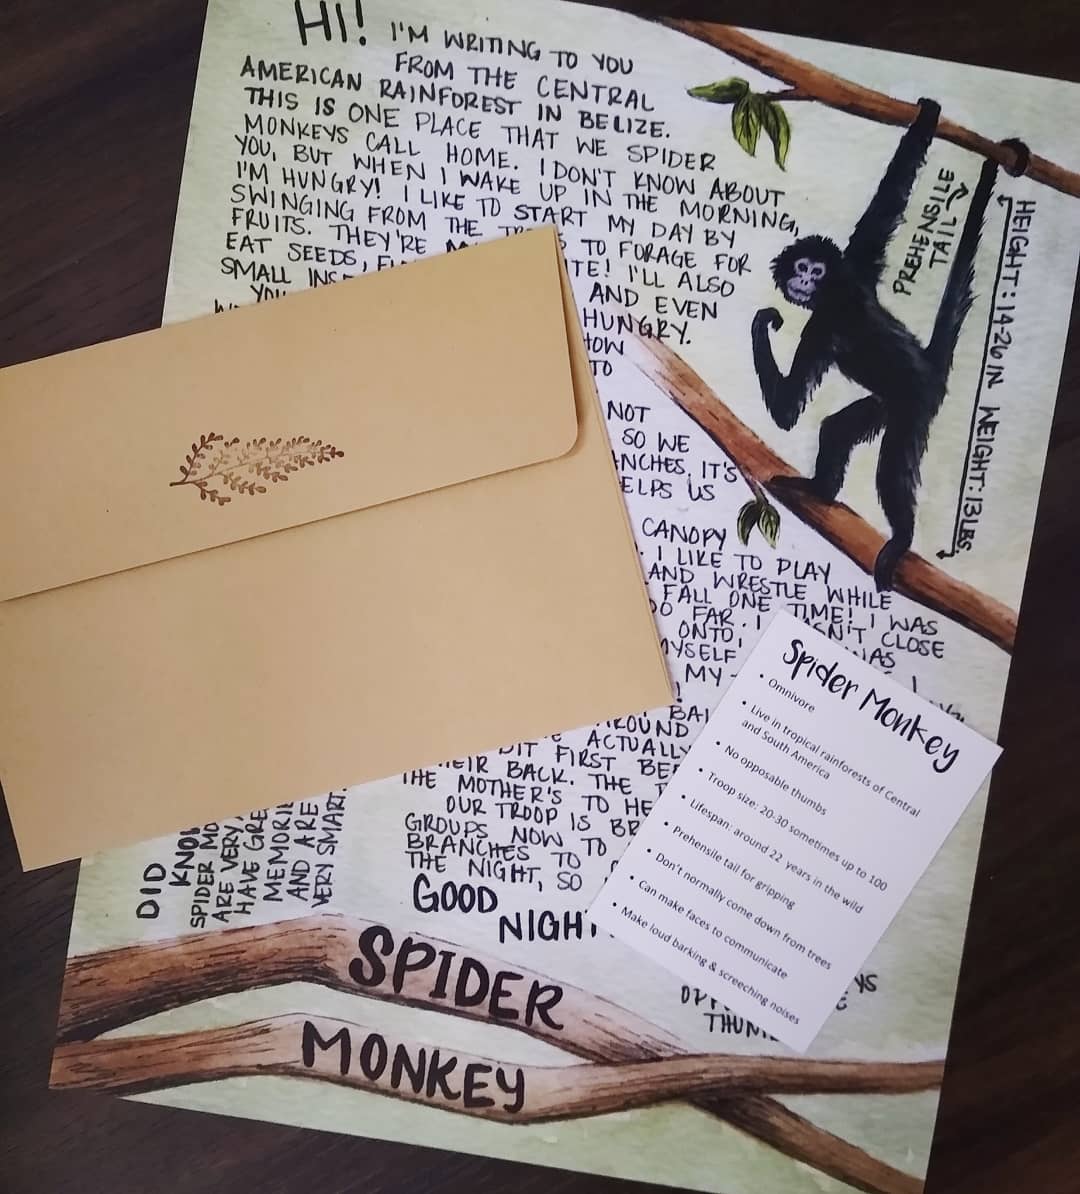 HI! I'M WRITING TO YOU
FROM THE CENTRAL
AMERICAN RAINFOREST IN BELIZE.
THIS IS ONE PLACE THAT WE SPIDER
MONKEYS CALL HOME. I DON'T KNOW ABOUT
YOU, BUT WHEN I WAKE UP IN THE MORNING,
I'M HUNGRY! I LIKE TO START MY DAY BY
SWINGING FROM THE TO FORAGE FOR
FRUITS. THEY'RE I'LL ALSO
EAT SEEDS, AND EVEN
SMALL HUNGRY.
TO
NOT
SO WE
IT'S
US
CANOPY
I LIKE TO PLAY
AND WRESTLE WHILE
FALL ONE TIME! I WAS
FAR. I CLOSE
ONTO,
MY
ACTUALLY
FIRST
BACK. THE
THE MOTHER'S TO
OUR TROOP IS
GROUPS NOW TO
BRANCHES TO
THE NIGHT, SO
GOOD
PREHENSILE
TAIL
HEIGHT: 14-26 IN WEIGHT: 13 LBS
DID
SPIDER
ARE VERY
HAVE
AND ARE
VERY SMART.
SPIDER
MONKEY
Spider Monkey
• Omnivore
• Live in tropical rainforests of Central
and South America
• No opposable thumbs
• Troop size: 20-30 sometimes up to 100
• Lifespan: around 22 years in the wild
• Prehensile tail for gripping
• Don't normally come down from trees
• Can make faces to communicate
• Make loud barking & screeching noises